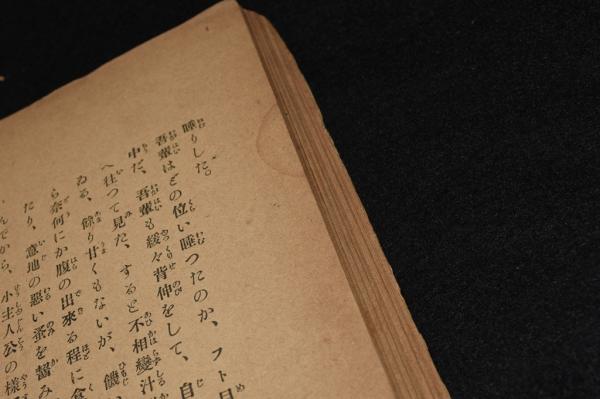 睡りした。
吾輩はどの位い睡つたのか、フト目
中だ、吾輩も緩々背伸をして、自
へ往つて見た、すると不相變汁
ゐる、餘り甘くもないが、饑
ら奈何にか腹の出來る程に食
たり、意地の惡い蚤を嚙み
んでから、小主人公の樣